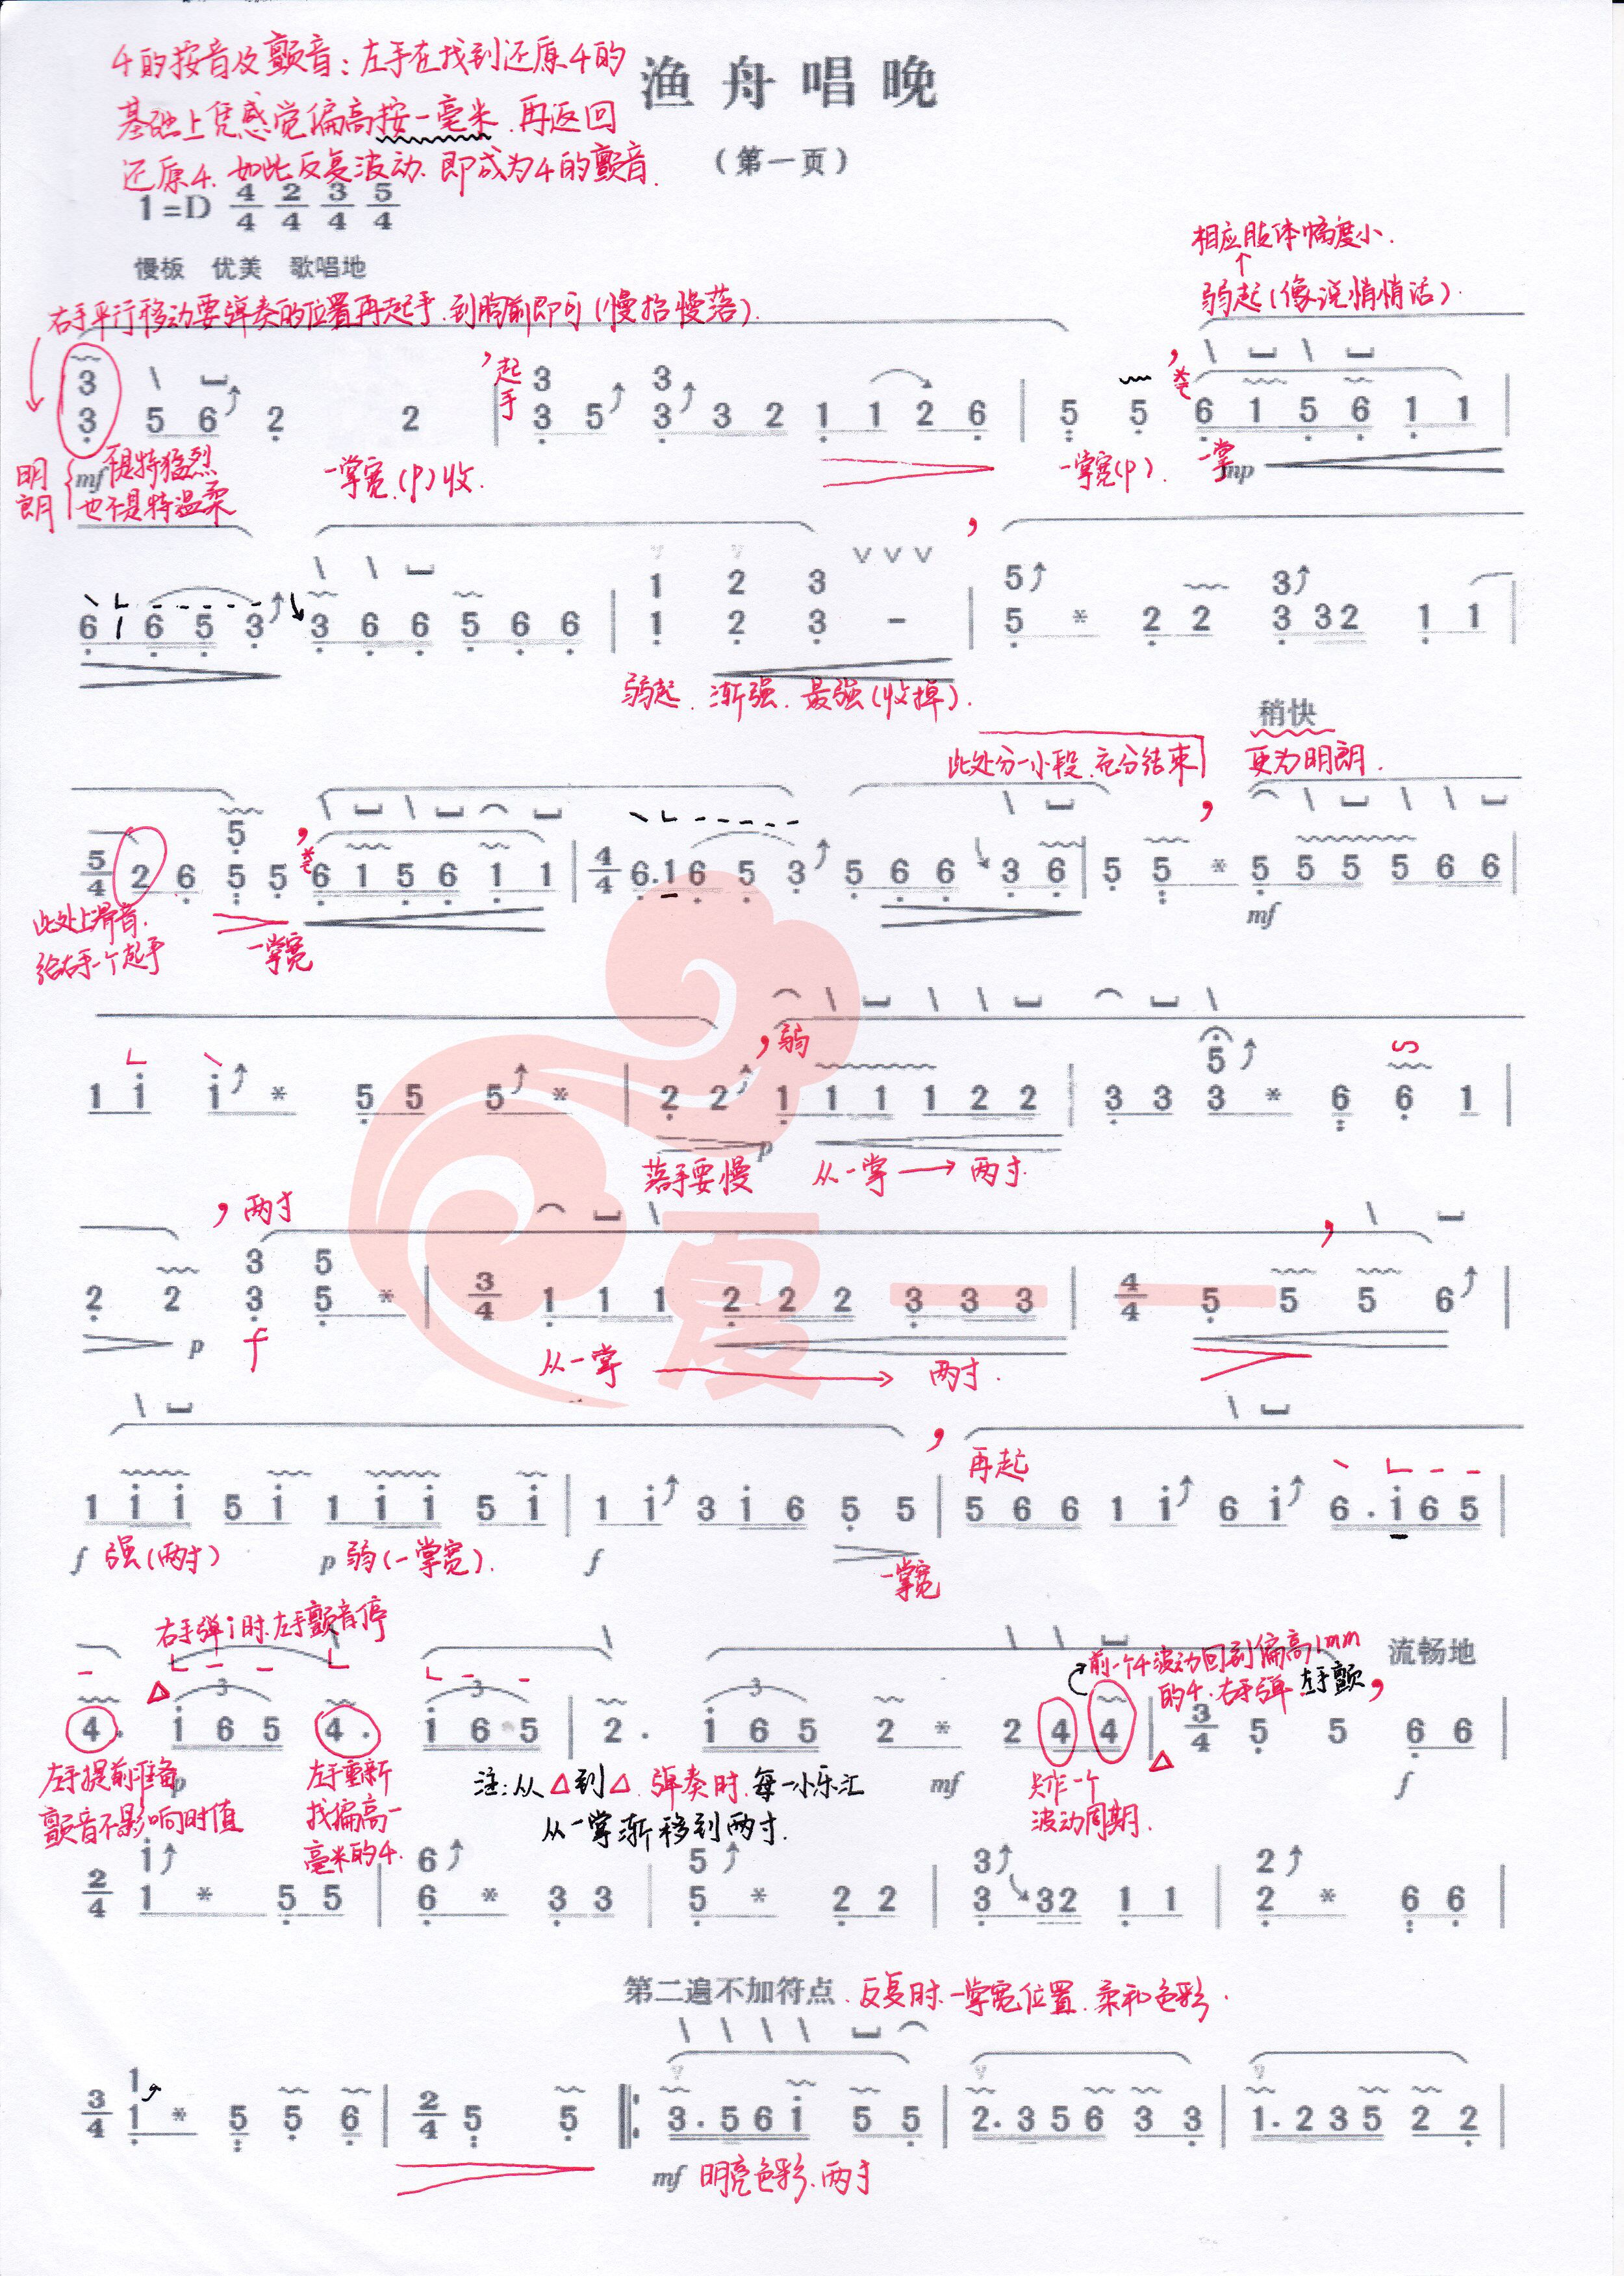 4的按音及颤音：左手在找到还原4的
基础上凭感觉偏高按一毫米.再返回
还原4.如此反复波动.即成为4的颤音.
渔舟唱晚
（第一页）
1=D 4/4 2/4 3/4 5/4
慢板 优美 歌唱地
相应肢体幅度小.
弱起(像说悄悄话).
右手平行移动要弹奏的位置再起手.到胸前即可(慢抬慢落).
起手
3 5 6 2 2 | 3 5 3 3 2 1 1 2 6 | 5 5 6 1 5 6 1 1 |
明朗
mf 不是特猛烈
也不是特温柔
一掌宽.(p)收.
一掌宽(p).
一掌
mp
6 1 6 5 3 3 6 6 5 6 6 | 1 2 3 - | 5 * 2 2 3 32 1 1 |
弱起.渐强.最强(收掉).
稍快
此处分一小段.充分结束
更为明朗.
5/4 2 6 5 5 6 1 5 6 1 1 | 4/4 6.1 6 5 3 5 6 6 3 6 | 5 5 * 5 5 5 5 6 6 |
mf
此处上滑音.
给右手一个起手
一掌宽
弱
1 i i * 5 5 5 * | 2 2 1 1 1 1 2 2 | 3 3 3 * 6 6 1 |
p
落手要慢
从一掌→两寸.
两寸
2 2 3 5 * | 3/4 1 1 1 2 2 2 3 3 3 | 4/4 5 5 5 6 |
p
f
从一掌
两寸.
再起
1 i i 5 i 1 i i 5 i | 1 i 3 i 6 5 5 | 5 6 6 1 i 6 i 6.i65 |
f 强(两寸)
p 弱(一掌宽).
f
一掌宽
右手弹i时.左手颤音停
前一个4波动回到偏高1mm
的4.右手弹.左手颤
流畅地
4. i 6 5 4. i 6 5 | 2. i 6 5 2 * 2 4 4 | 3/4 5 5 6 6
左手提前准备
p
颤音不影响时值
左手重新
找偏高一
毫米的4.
注：从△到△.弹奏时.每一小乐汇
从一掌渐移到两寸.
mf
只作一个
波动周期.
f
2/4 1 * 5 5 | 6 * 3 3 | 5 * 2 2 | 3 32 1 1 | 2 * 6 6 |
第二遍不加符点.反复时.一掌宽位置.柔和色彩.
3/4 1 * 5 5 6 | 2/4 5 5 ‖: 3.56i 5 5 | 2.356 3 3 | 1.235 2 2 |
mf 明亮色彩.两寸
夏一一